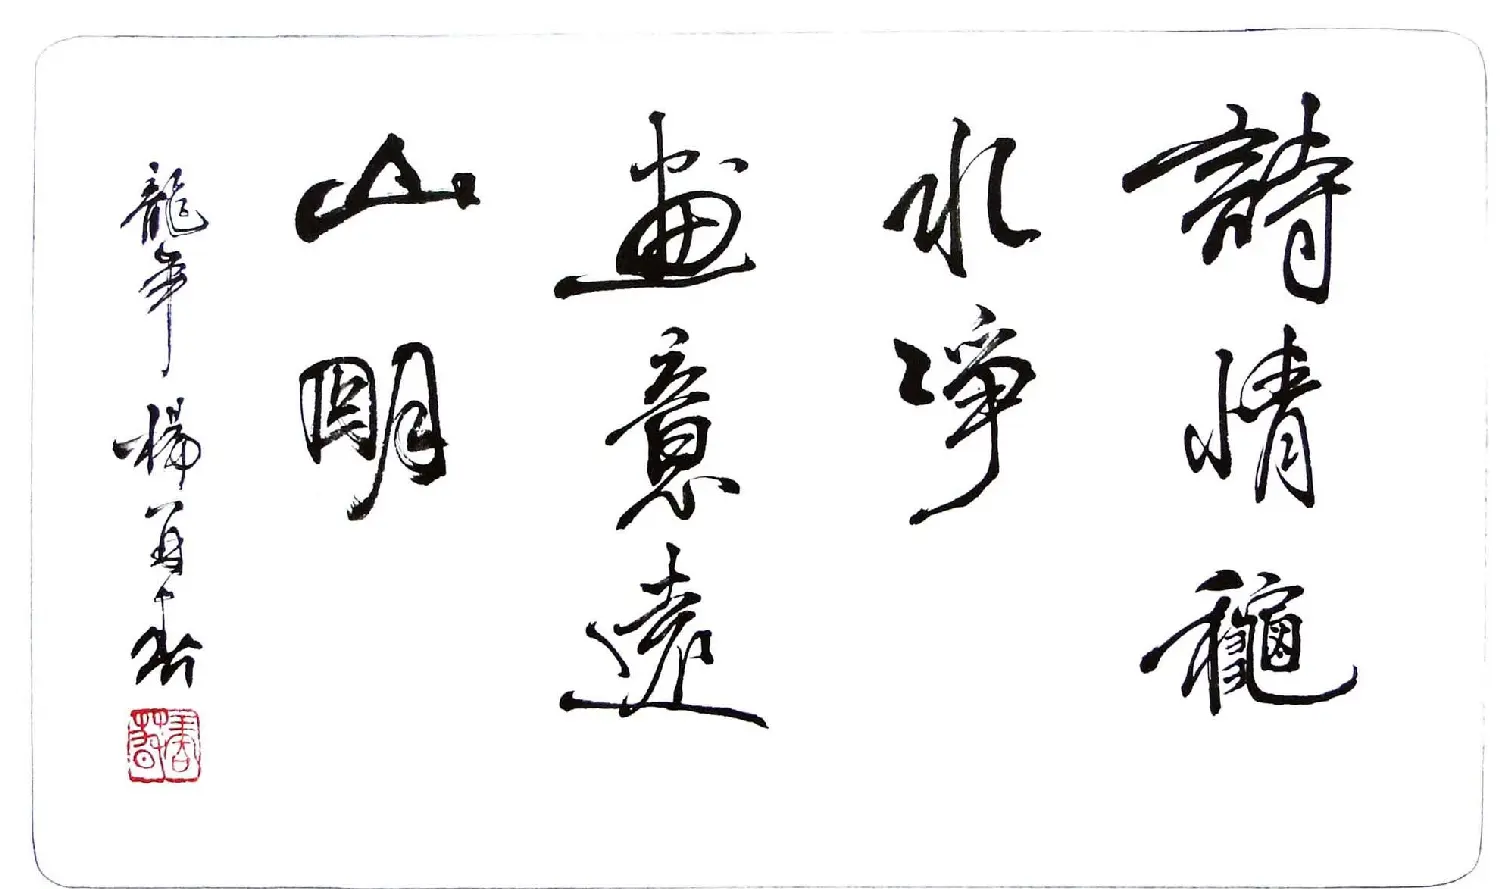 詩情龝
水凈
畫意遠
山明
龍年 楊再春